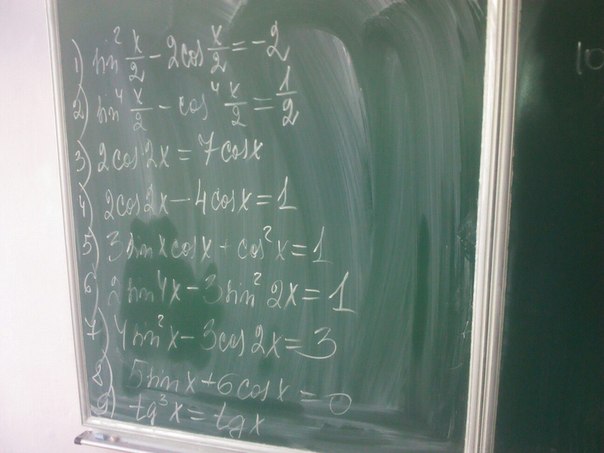 1) sin² x/2 − 2cos x/2 = −2
2) sin⁴ x/2 − cos⁴ x/2 = 1/2
3) 2cos2x = 7cosx
4) 2cos2x − 4cosx = 1
5) 3sinxcosx + cos²x = 1
6) 2sin4x − 3sin²2x = 1
7) 4sin²x − 3cos2x = 3
8) 5sinx + 6cosx = 0
9) tg³x = tgx
10